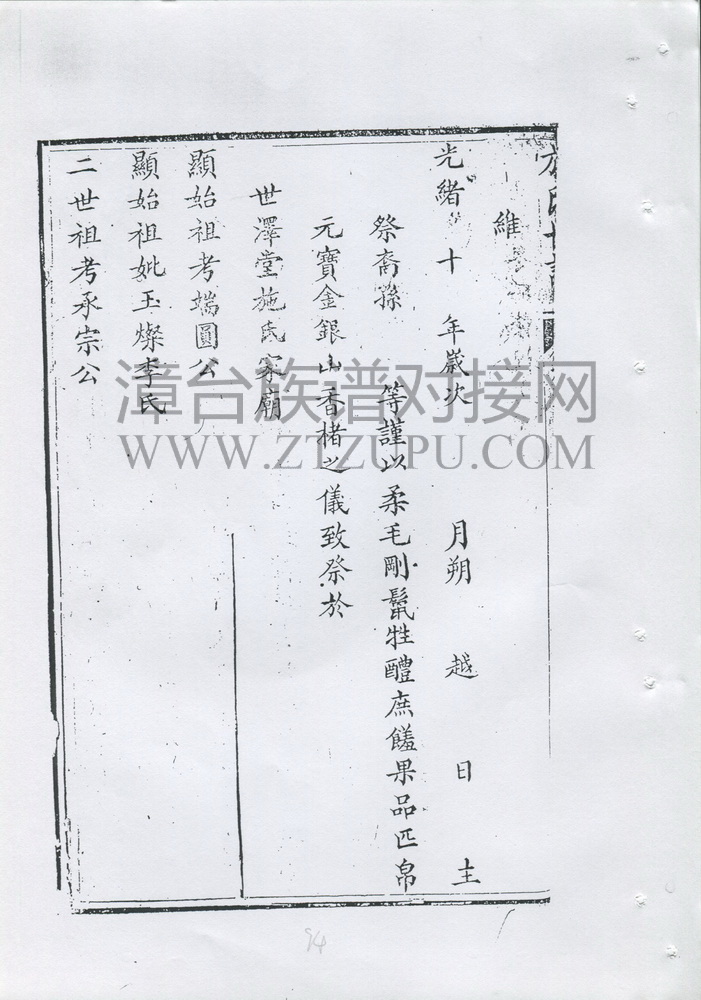 維
光緒 十 年歲次 月朔 越 日 主
祭裔孫 等謹以柔毛剛鬣牲醴庶饈果品匹帛
元寶金銀山香楮之儀致祭於
世澤堂施氏家廟
顯始祖考端圓公
顯始祖妣玉燦李氏
二世祖考承宗公
漳台族谱对接网
WWW.ZTZUPU.COM
94